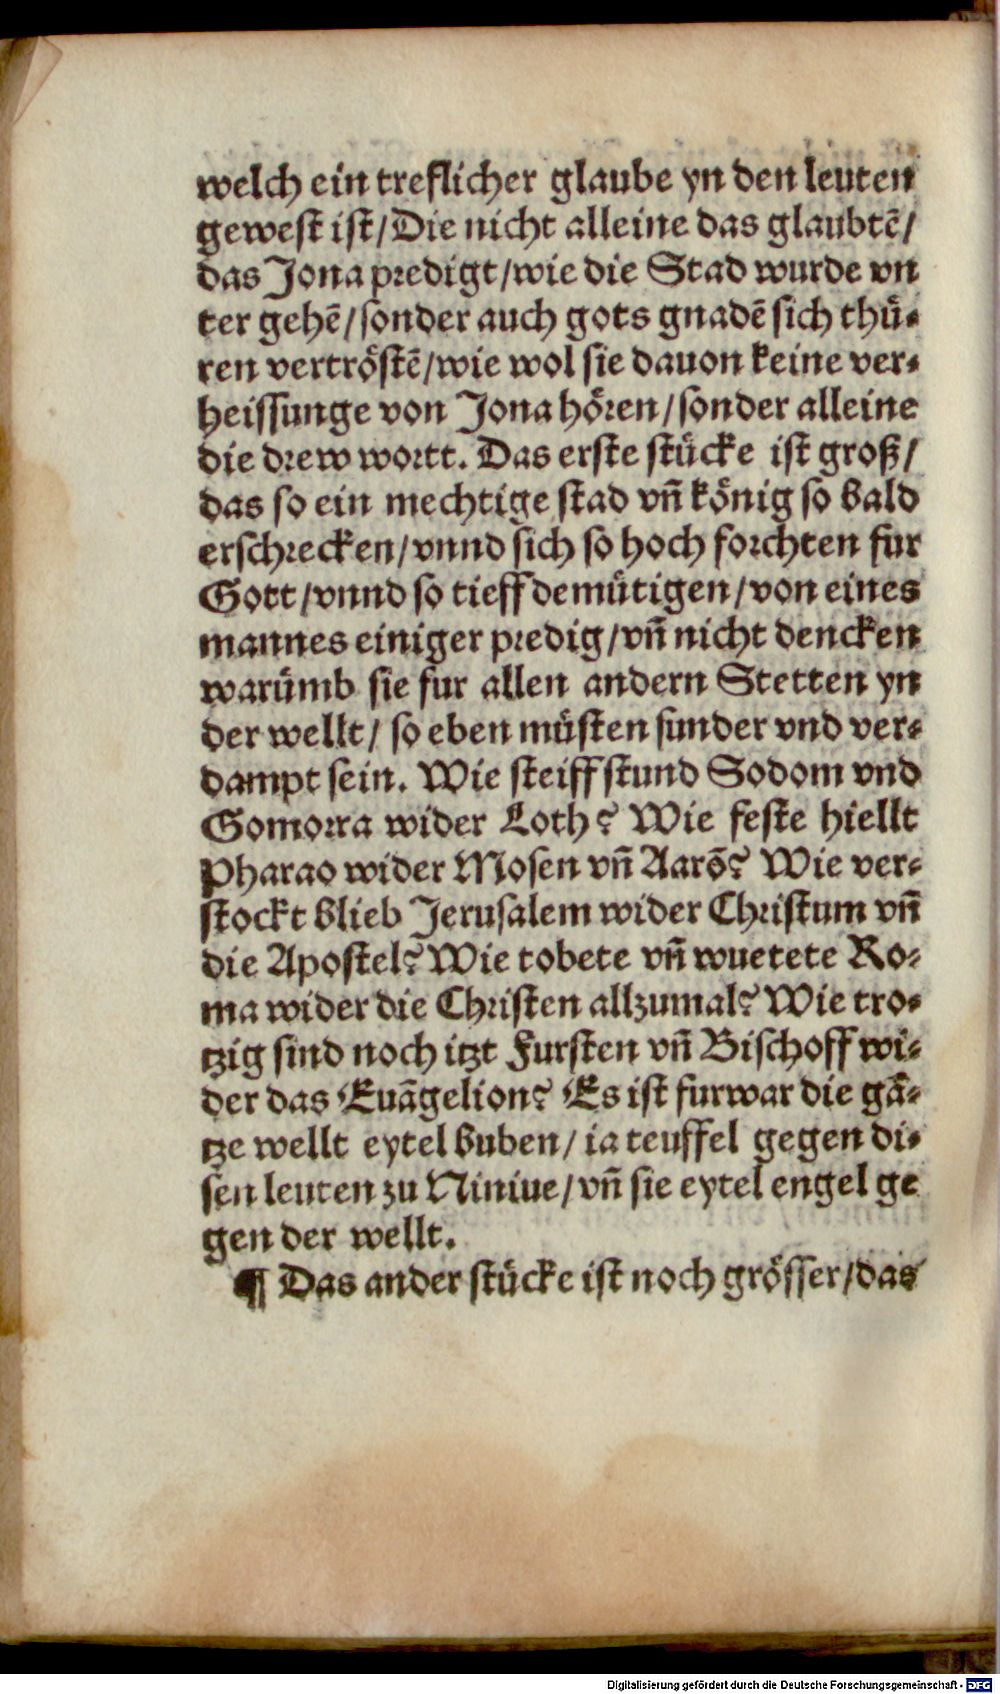 welch ein treflicher glaube yn den leuten
gewest ist/Die nicht alleine das glaubtē/
das Jona predigt/wie die Stad wurde vn
ter gehē/sonder auch gots gnadē sich thü-
ren vertröstē/wie wol sie dauon keine ver-
heissunge von Jona hören/sonder alleine
die drew wortt. Das erste stücke ist groß/
das so ein mechtige stad vn̄ könig so bald
erschrecken/vnnd sich so hoch forchten fur
Gott/vnnd so tieff demütigen/von eines
mannes einiger predig/vn̄ nicht dencken
warümb sie fur allen andern Stetten yn
der wellt/ so eben müsten sunder vnd ver-
dampt sein. Wie steiff stund Sodom vnd
Gomorra wider Loth? Wie feste hiellt
Pharao wider Mosen vn̄ Aarō? Wie ver-
stockt blieb Jerusalem wider Christum vn̄
die Apostel? Wie tobete vn̄ wuetete Ro-
ma wider die Christen allzumal? Wie tro-
tzig sind noch itzt Fursten vn̄ Bischoff wi-
der das Euāgelion? Es ist furwar die gā-
tze wellt eytel buben/ ia teuffel gegen di-
sen leuten zu Niniue/vn̄ sie eytel engel ge
gen der wellt.
¶ Das ander stücke ist noch grösser/das
Digitalisierung gefördert durch die Deutsche Forschungsgemeinschaft - DFG